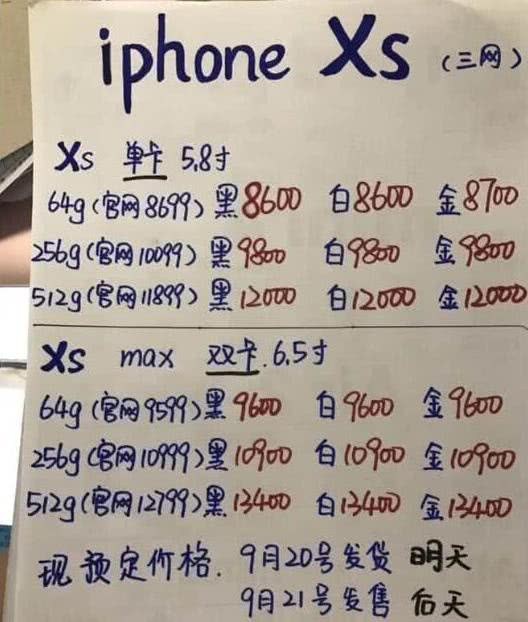 iphone Xs (三网)
Xs 单卡 5.8寸
64g(官网8699)黑8600 白8600 金8700
256g(官网10099)黑9800 白9800 金9800
512g(官网11899)黑12000 白12000 金12000
Xs max 双卡.6.5寸
64g(官网9599)黑9600 白9600 金9600
256g(官网10999)黑10900 白10900 金10900
512g(官网12799)黑13400 白13400 金13400
现预定价格. 9月20号发货 明天
9月21号发售 后天